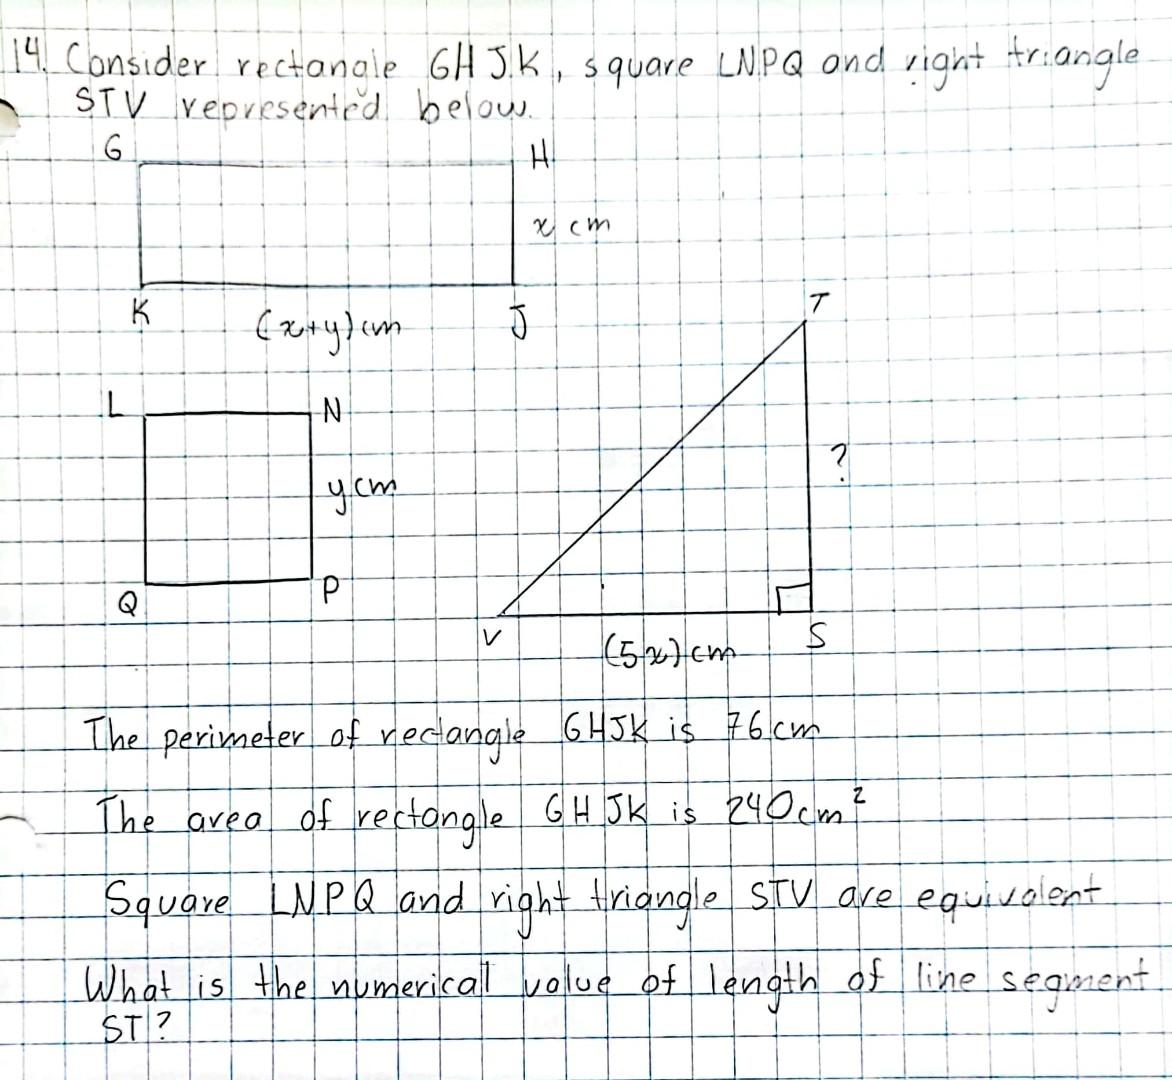 14. Consider rectangle GHJK, square LNPQ and right triangle
STV represented below.
G
H
x cm
K
(x+y) cm
J
T
L
N
y cm
?
Q
P
V
(5x) cm
S
The perimeter of rectangle GHJK is 76 cm
The area of rectangle GHJK is 240 cm²
Square LNPQ and right triangle STV are equivalent
What is the numerical value of length of line segment
ST?